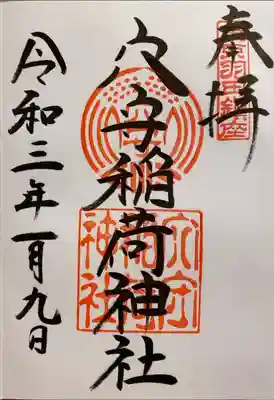 奉拝
東羽田鎮座
穴守稲荷神社
穴守
稲荷
神社
令和三年一月九日